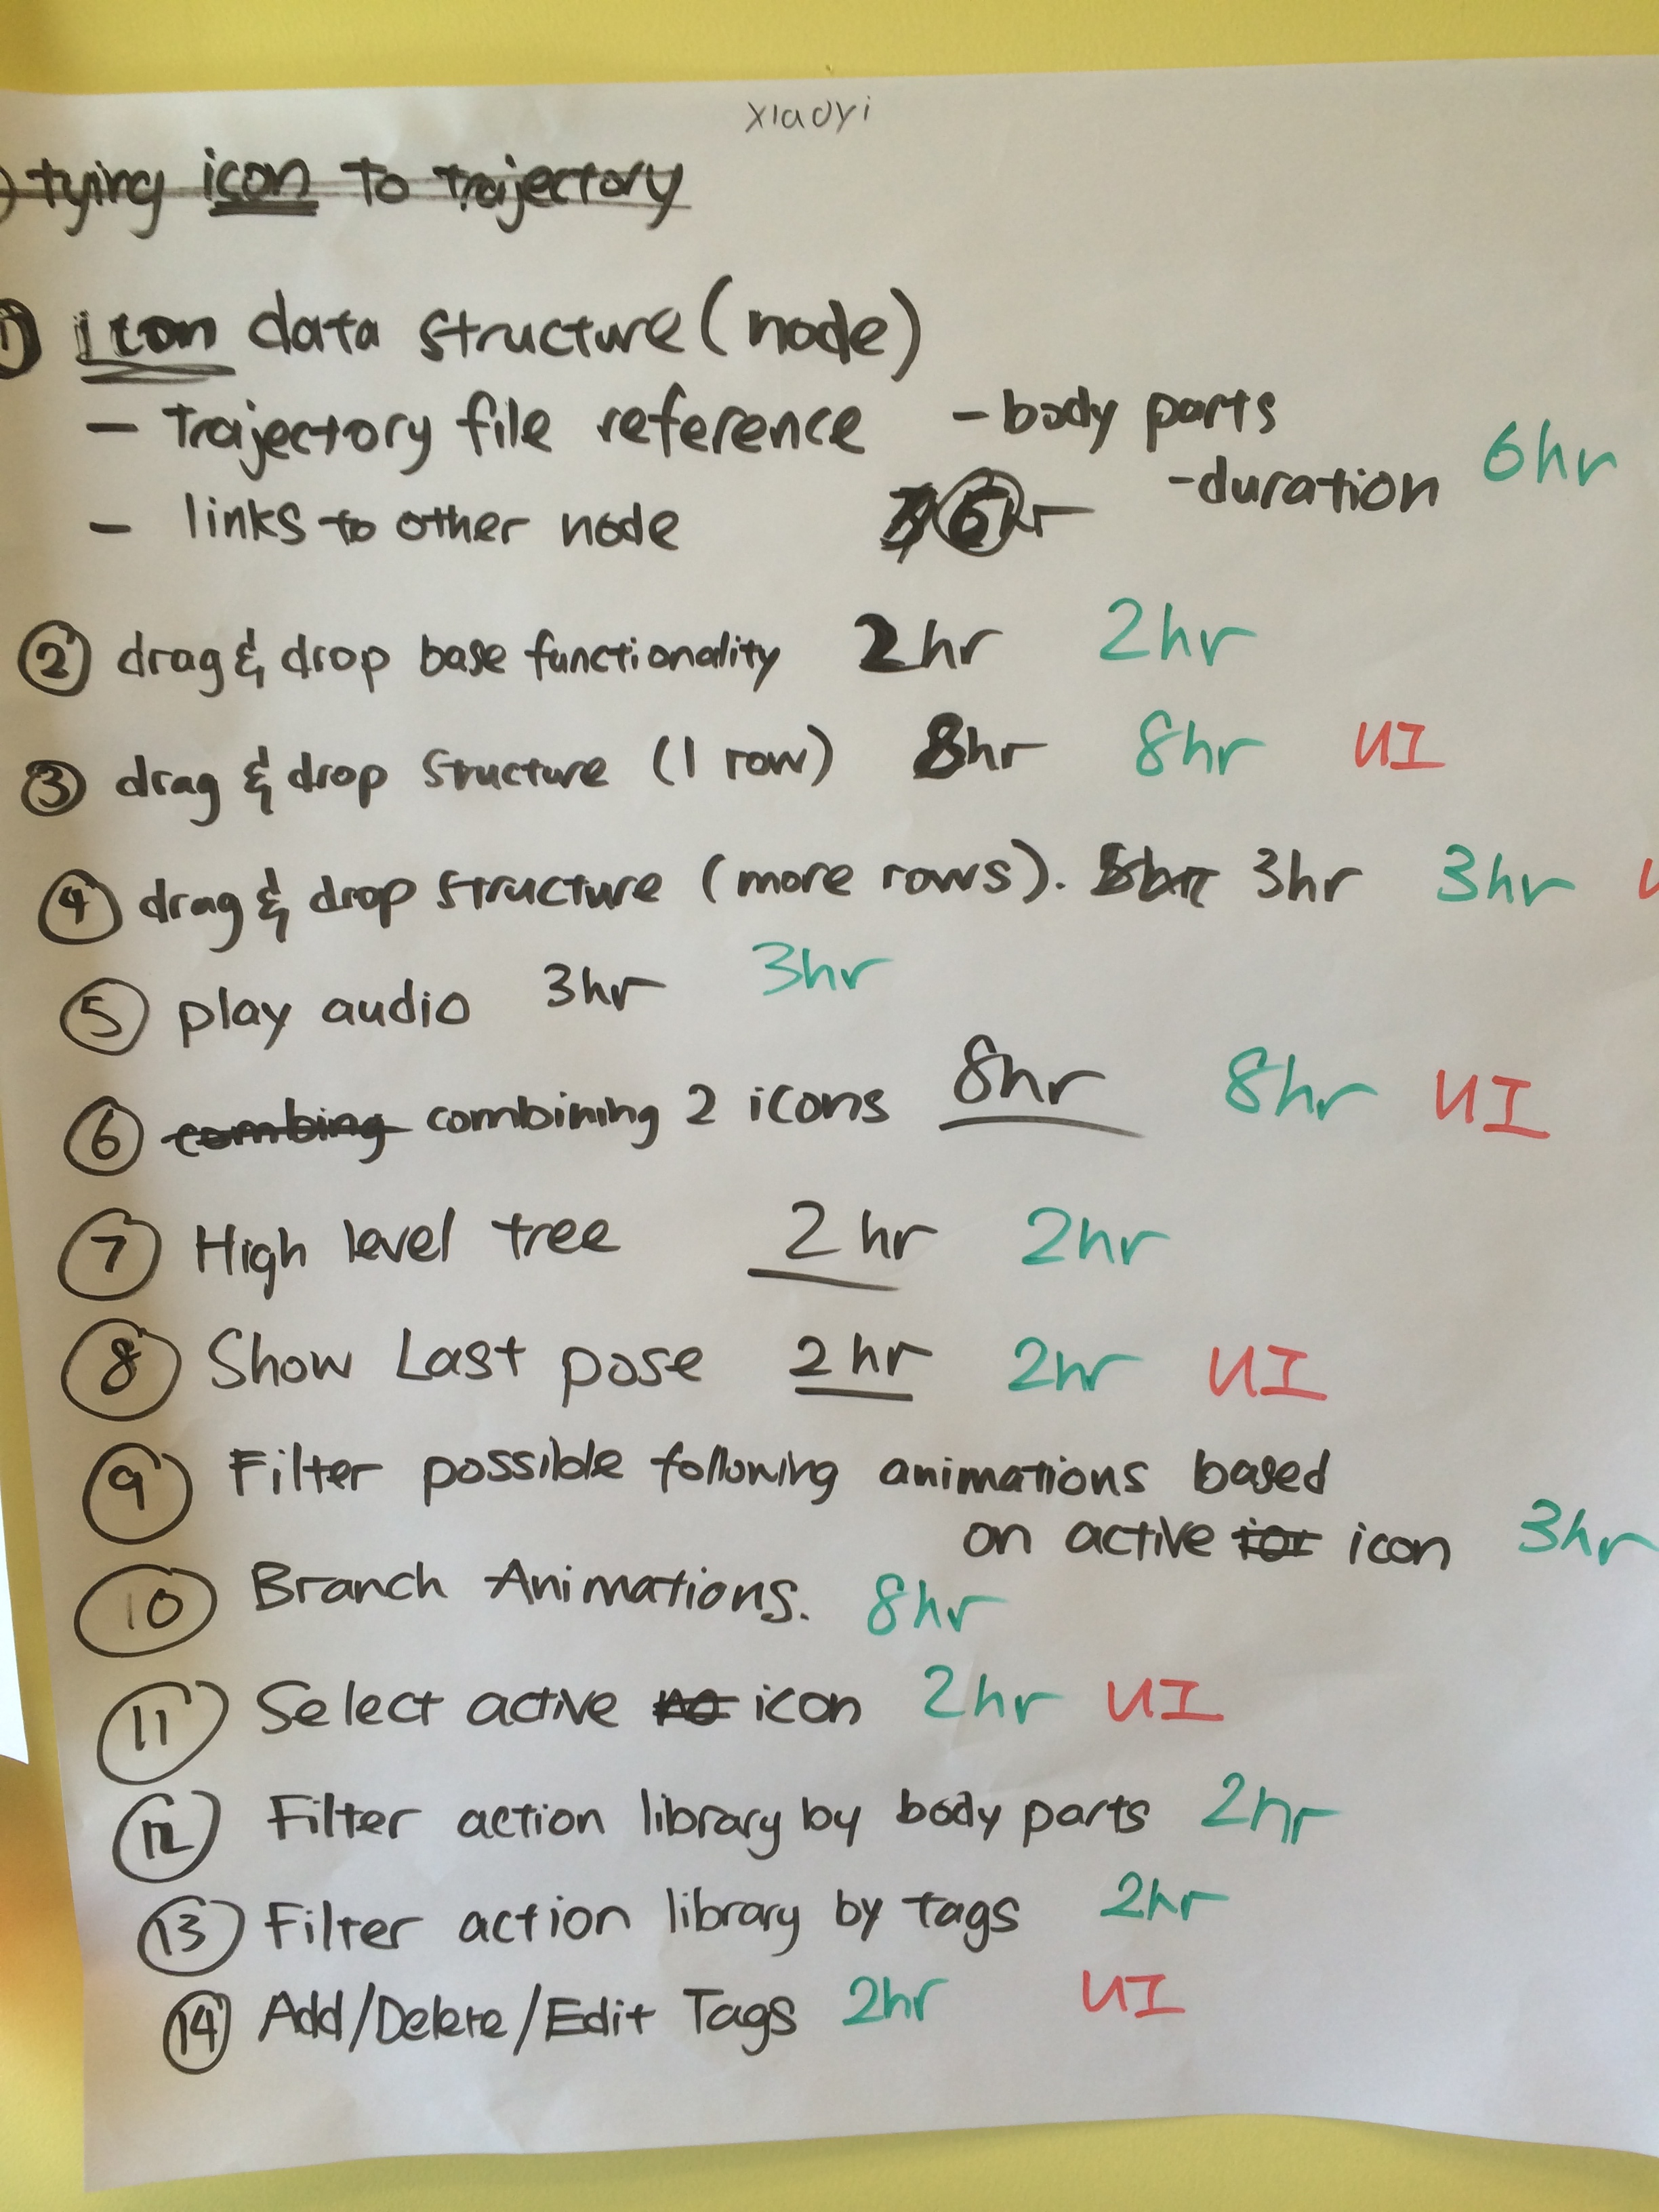 xiaoyi
tying icon to trajectory
1 icon data structure (node)
- Trajectory file reference - body parts
- duration 6hr
- links to other node 6hr
2 drag & drop base functionality 2hr 2hr
3 drag & drop structure (1 row) 8hr 8hr UI
4 drag & drop structure (more rows). 3hr 3hr
5 play audio 3hr 3hr
6 combing combining 2 icons 8hr 8hr UI
7 High level tree 2 hr 2hr
8 Show Last pose 2 hr 2hr UI
9 Filter possible following animations based
on active icon 3hr
10 Branch Animations. 8hr
11 Select active no icon 2hr UI
12 Filter action library by body parts 2hr
13 Filter action library by tags 2hr
14 Add/Delete/Edit Tags 2hr UI